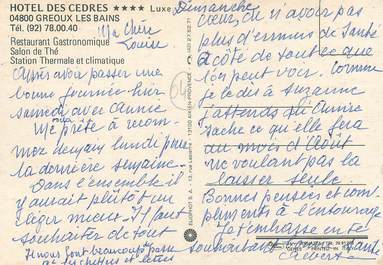 HOTEL DES CEDRES **** Luxe
04800 GREOUX LES BAINS
Tél. (92) 78.00.40
Restaurant Gastronomique
Salon de Thé
Station Thermale et climatique
Ma Chère
Louise
Après avoir passer une
bonne journée hier
samedi avec Annie
me prête à recom-
mez demain lundi pour
la dernière semaine.
Dans l'ensemble il
y aurait plutôt un
léger mieux. Il faut
souhaiter de tout
Dimanche
cœur, de n'avoir pas
plus d'ennuis de santé
à côté de tout ce que
l'on peut voir. Comme
je le dis à Suzanne
j'attends qu'Annie
sache ce qu'elle fera
au mois d'Août
ne voulant pas la
laisser seule.
Bonnes pensées et com-
pliments à l'entourage
Je t'embrasse en te
souhaitant
Albert